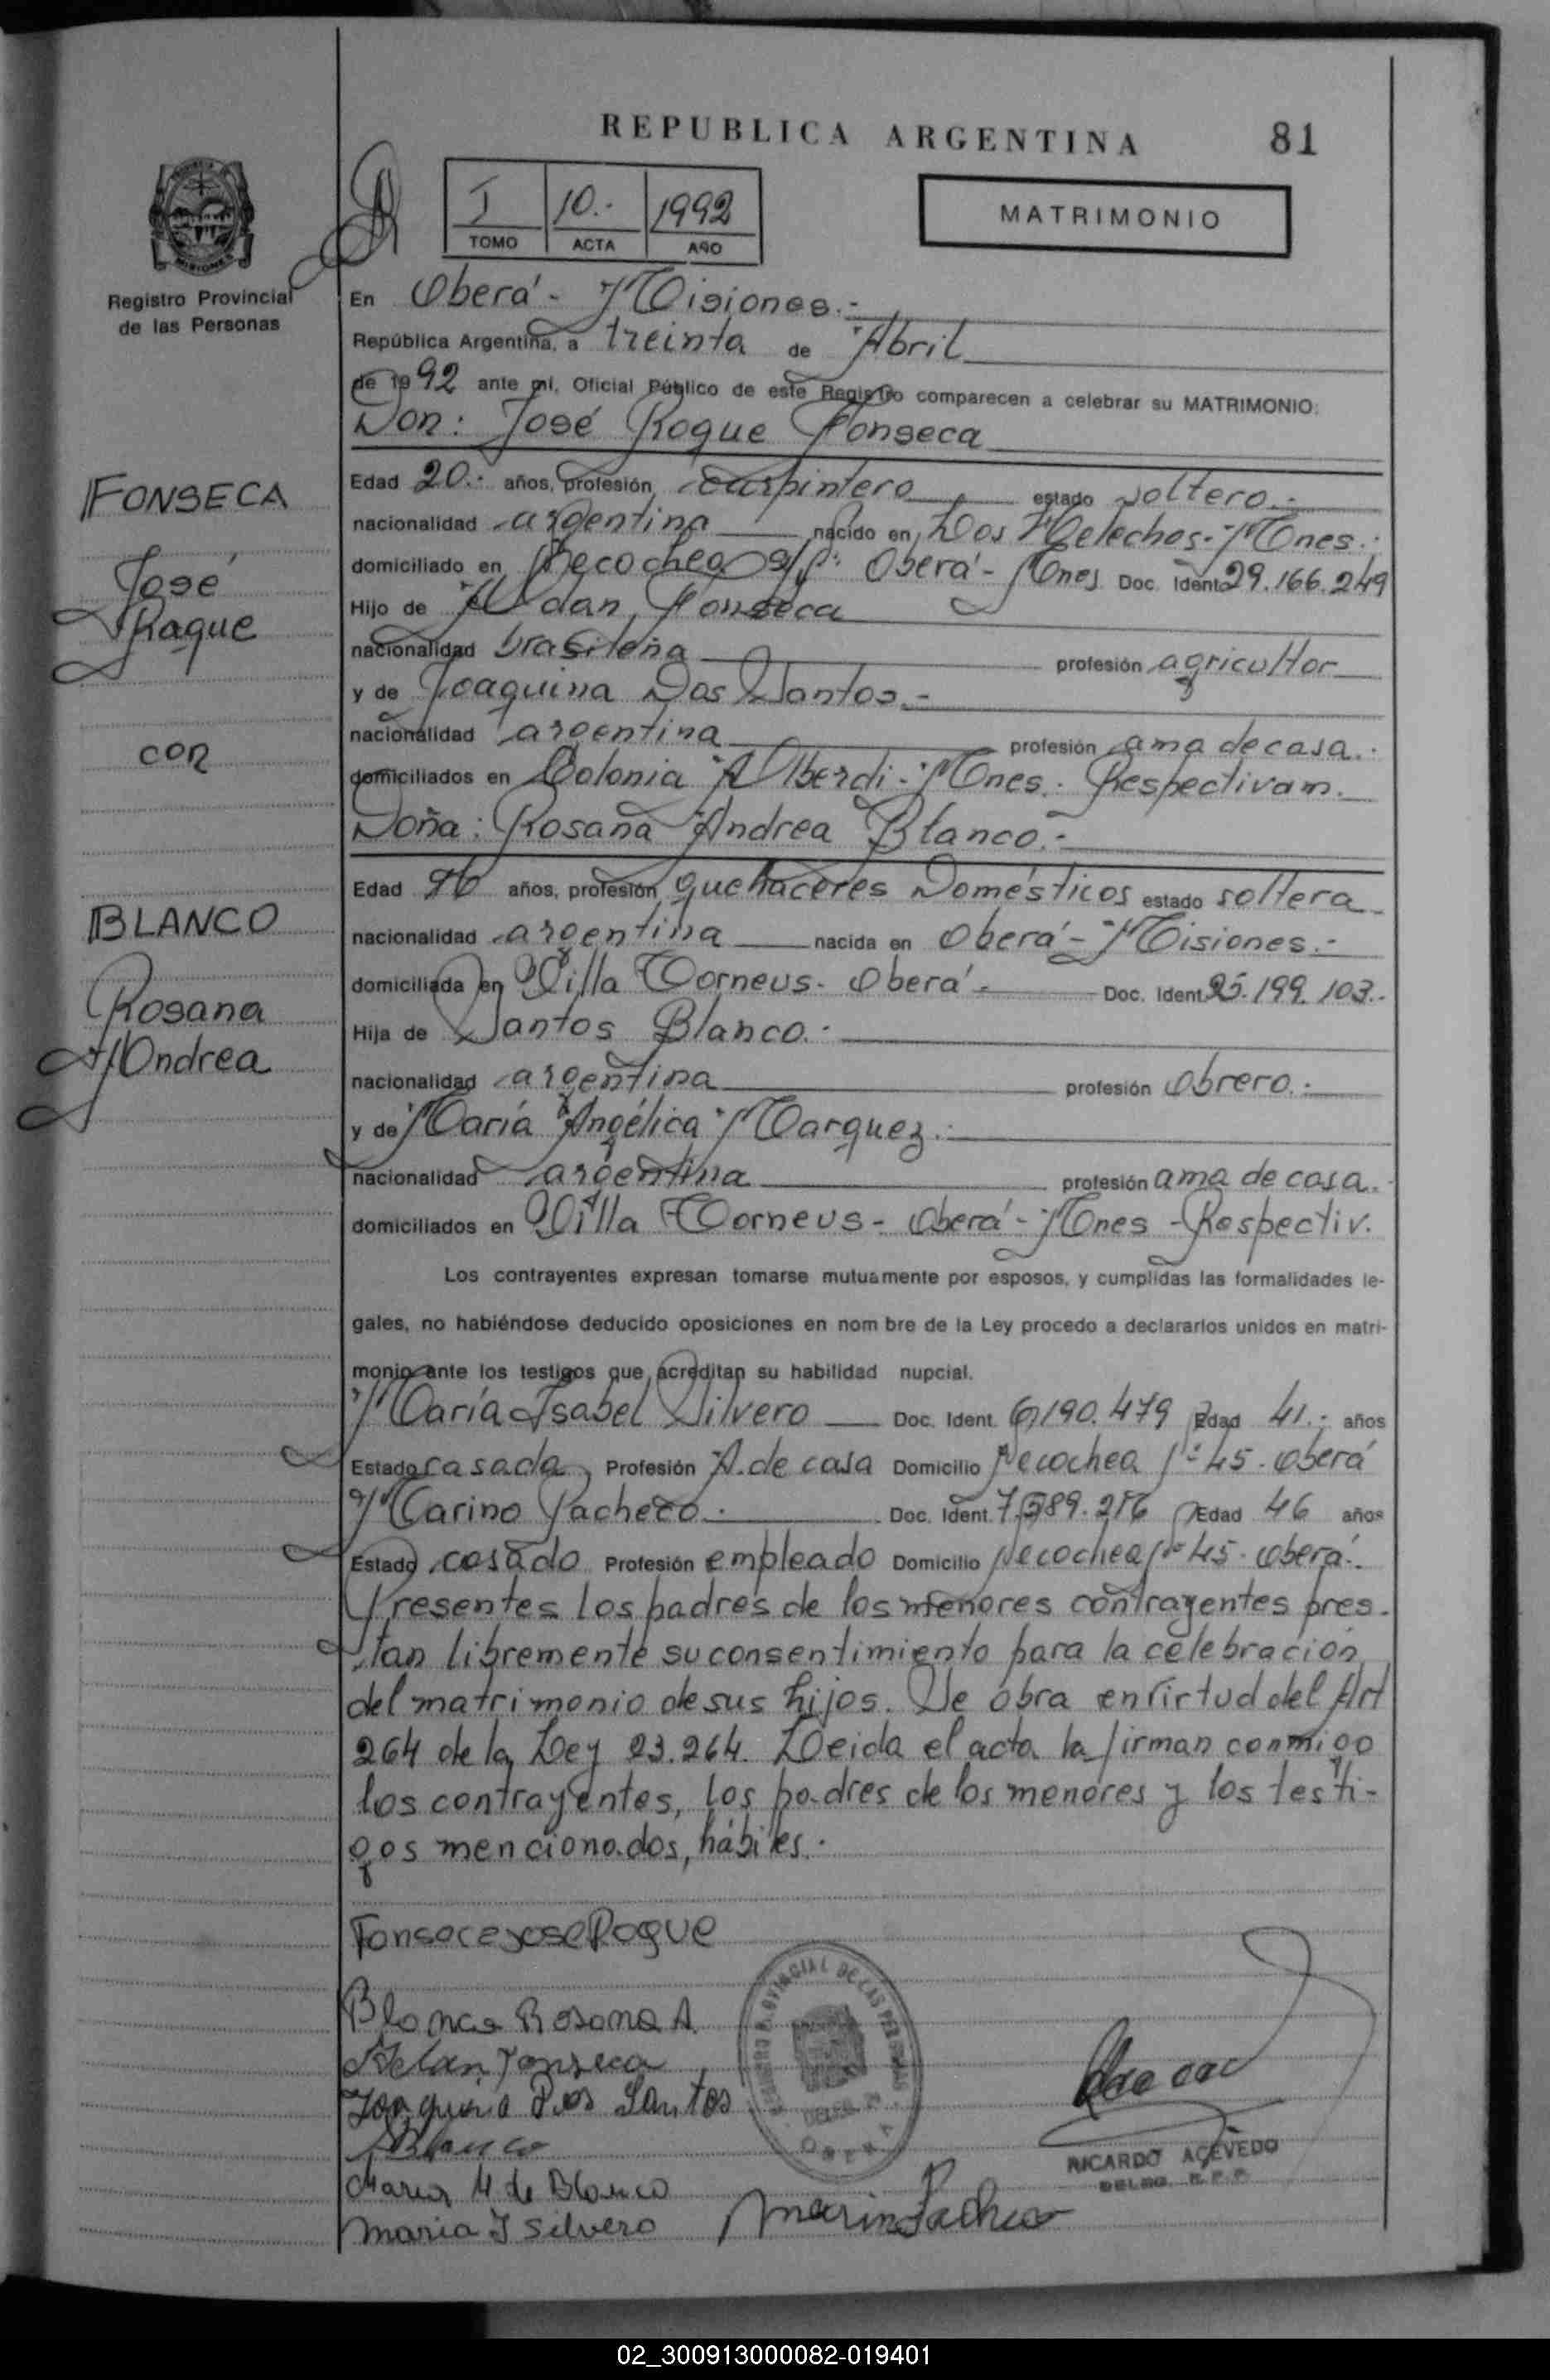 REPUBLICA ARGENTINA 81
I 10.- 1992
TOMO ACTA AÑO
MATRIMONIO
Registro Provincial
de las Personas
En Oberá - Misiones.-
República Argentina, a treinta de Abril
de 1992 ante mi, Oficial Público de este Registro comparecen a celebrar su MATRIMONIO:
Don: José Roque Fonseca
FONSECA
José
Roque
con
BLANCO
Rosana
Andrea
Edad 20.- años, profesión, carpintero estado soltero.-
nacionalidad argentina nacido en Dos Helechos - Mnes.:
domiciliado en Necochea Oberá - Mnes Doc. Ident. 29.166.249
Hijo de Adan Fonseca
nacionalidad brasileña profesión agricultor
y de Joaquina Dos Santos.-
nacionalidad argentina profesión ama de casa.-
domiciliados en Colonia Alberdi - Mnes. Respectivam.
Doña: Rosana Andrea Blanco.-
Edad 16 años, profesión quehaceres Domésticos estado soltera
nacionalidad argentina nacida en Oberá - Misiones.-
domiciliada en Villa Torneus - Oberá - Doc. Ident. 25.199.103.-
Hija de Santos Blanco.-
nacionalidad argentina profesión obrero.-
y de María Angélica Marquez.-
nacionalidad argentina profesión ama de casa.
domiciliados en Villa Torneus - Oberá - Mnes - Respectiv.
Los contrayentes expresan tomarse mutuamente por esposos, y cumplidas las formalidades le-
gales, no habiéndose deducido oposiciones en nom bre de la Ley procedo a declararlos unidos en matri-
monio ante los testigos que acreditan su habilidad nupcial.
María Isabel Silvero Doc. Ident. 6,190.479 Edad 41.- años
Estado casada Profesión A. de casa Domicilio Necochea 45 - Oberá
Marino Pacheco. Doc. Ident. 7.589.216 Edad 46 años
Estado casado Profesión empleado Domicilio Necochea 45 - Oberá.-
Presentes los padres de los menores contrayentes pres-
tan libremente su consentimiento para la celebración
del matrimonio de sus hijos. Se obra en virtud del Art
264 de la Ley 23.264. Leida el acta la firman conmigo
los contrayentes, los padres de los menores y los testi-
gos mencionados, hábiles.
Fonseca Jose Roque
Blanco Rosana A.
Adan Fonseca
Joaquina Dos Santos
Blanco
Maria M de Blanco
Maria I Silvero
Marino Pacheco
REGISTRO PROVINCIAL DE LAS PERSONAS
OBERA
RICARDO ACEVEDO
DELEG. R.P.P.
02_300913000082-019401